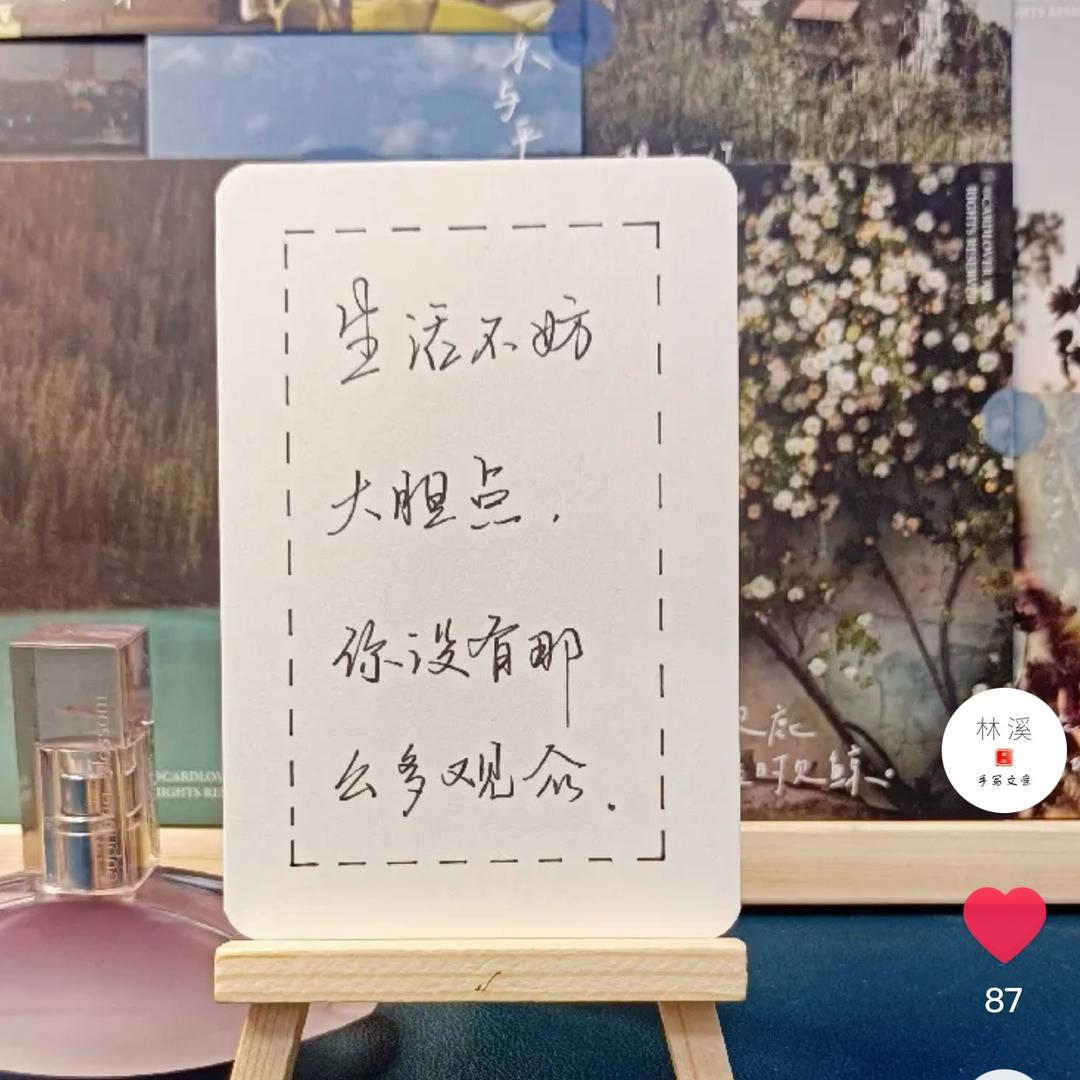 乐
与
平
RIGHTS RESERVED
生活不妨
大胆点.
你没有那
么多观众.
林溪
手写文案
87